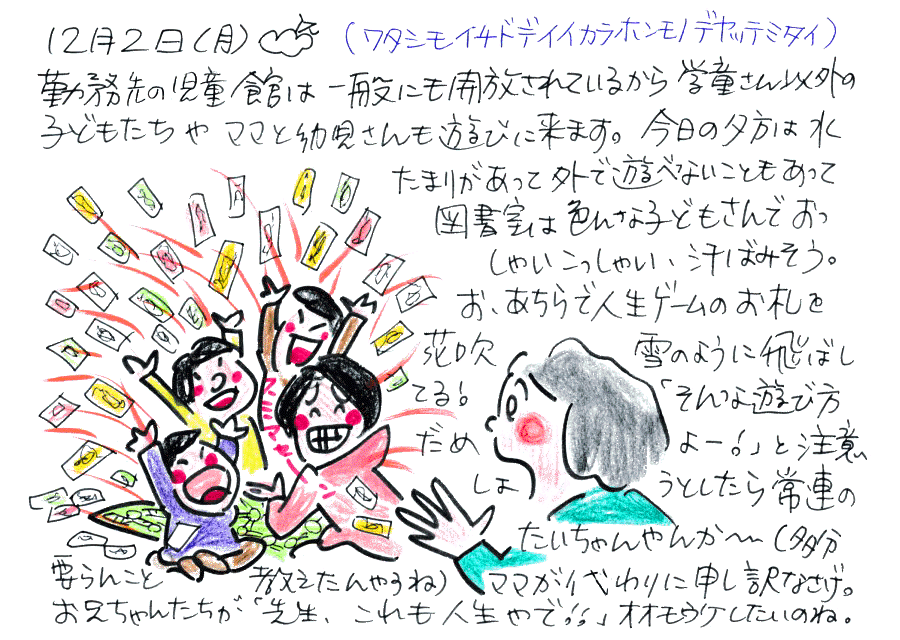 12月2日(月) (ワタシモイチドデイイカラホンモノデヤッテミタイ)
勤務先の児童館は一般にも開放されているから学童さん以外の
子どもたちやママと幼児さんも遊びに来ます。今日の夕方は水
たまりがあって外で遊べないこともあって
図書室は色んな子どもさんでおっ
しゃいこっしゃい、汗ばみそう。
お、あちらで人生ゲームのお札を
花吹雪のように飛ばし
てる!「そんな遊び方
だめよー!」と注意
しようとしたら常連の
たいちゃんやんか〜(多分
要らんこと教えたんやろね)ママが代わりに申し訳なさげ。
お兄ちゃんたちが「先生、これも人生やで!!」オオモウケしたいのね。
スミマセン